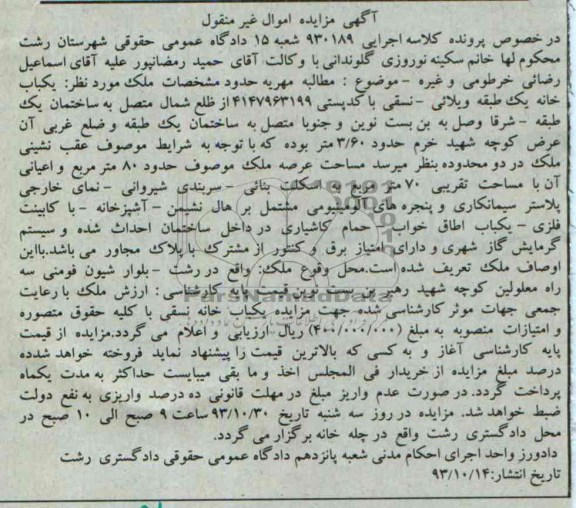 آگهی مزایده اموال غیر منقول
در خصوص پرونده کلاسه اجرایی ۹۳۰۱۸۹ شعبه ۱۵ دادگاه عمومی حقوقی شهرستان رشت
محکوم لها خانم سکینه نوروزی گلوندانی با وکالت آقای حمید رمضانپور علیه آقای اسماعیل
رضائی خرطومی و غیره - موضوع : مطالبه مهریه حدود مشخصات ملک مورد نظر: یکباب
خانه یک طبقه ویلائی - نسقی با کدپستی ۴۱۴۷۹۶۳۱۹۹ از ظلع شمال متصل به ساختمان یک
طبقه - شرقا وصل به بن بست نوین و جنوبا متصل به ساختمان یک طبقه و ضلع غربی آن
عرض کوچه شهید خرم حدود ۳/۶۰ متر بوده که با توجه به شرایط موصوف عقب نشینی
ملک در دو محدوده بنظر میرسد مساحت عرصه ملک موصوف حدود ۸۰ متر مربع و اعیانی
آن با مساحت تقریبی ۷۰ متر مربع و اسکلت بنائی - سربندی شیروانی - نمای خارجی
پلاستر سیمانکاری و پنجره های آلومینیومی مشتمل بر هال نشیمن - آشپزخانه - با کابینت
فلزی - یکباب اطاق خواب - حمام کاشیاری در داخل ساختمان احداث شده و سیستم
گرمایش گاز شهری و دارای امتیاز برق و کنتور از مشترک با پلاک مجاور می باشد.بااین
اوصاف ملک تعریف شده است.محل وقوع ملک: واقع در رشت - بلوار شیون فومنی سه
راه معلولین کوچه شهید رهبر بن بست نوین قیمت پایه کارشناسی : ارزش ملک با رعایت
جمعی جهات موثر کارشناسی شده جهت مزایده یکباب خانه نسقی با کلیه حقوق متصوره
و امتیازات منصوبه به مبلغ (۴۰۰/۰۰۰/۰۰۰) ریال ارزیابی و اعلام می گردد.مزایده از قیمت
پایه کارشناسی آغاز و به کسی که بالاترین قیمت را پیشنهاد نماید فروخته خواهد شدده
درصد مبلغ مزایده از خریدار فی المجلس اخذ و ما بقی میبایست حداکثر به مدت یکماه
پرداخت گردد. در صورت عدم واریز مبلغ در مهلت قانونی ده درصد واریزی به نفع دولت
ضبط خواهد شد. مزایده در روز سه شنبه تاریخ ۹۳/۱۰/۳۰ ساعت ۹ صبح الی ۱۰ صبح در
محل دادگستری رشت واقع در چله خانه برگزار می گردد.
دادورز واحد اجرای احکام مدنی شعبه پانزدهم دادگاه عمومی حقوقی دادگستری رشت
تاریخ انتشار:۹۳/۱۰/۱۴